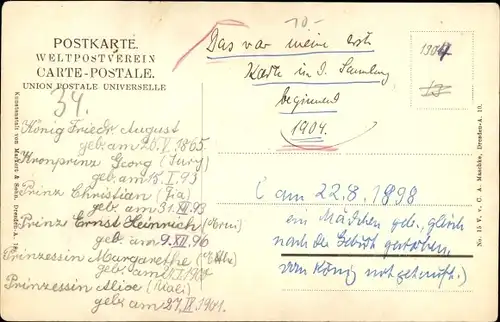 10-
POSTKARTE.
WELTPOSTVEREIN
CARTE-POSTALE.
UNION POSTALE UNIVERSELLE
34.
Das war meine erste
Karte in d. Sammlung
beginnend
1904.
1904
13
König Friedr. August
geb. am 25.V.1865.
Kronprinz Georg (Jury)
geb. am 15.I.93
Prinz Christian (Zia)
geb. am 31.XII.93
Prinz Ernst Heinrich (Erni)
geb. am 9.XII.96
Prinzessin Margarethe
geb. am
Prinzessin Alice (Mali)
geb. am 27.IX.1901.
(am 22.8.1898
ein Mädchen geb., gleich
nach der Geburt gestorben,
vom König notgetauft.)
Kunstanstalt von Markert & Sohn, Dresden-A.
No. 15 V. - C. A. Maschke, Dresden-A. 10.